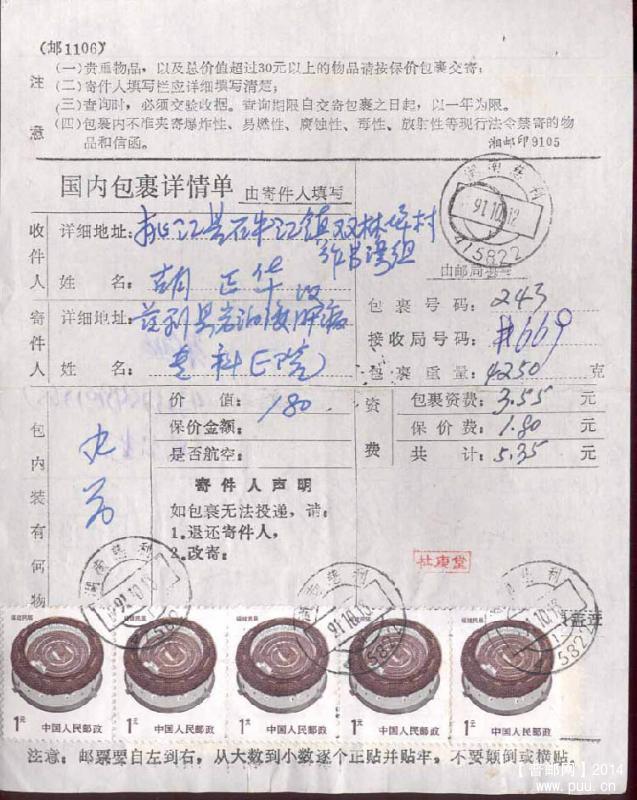 (邮1106)
注意
(一)贵重物品，以及总价值超过30元以上的物品请按保价包裹交寄；
(二)寄件人填写栏应详细填写清楚；
(三)查询时，必须交验收据。查询期限自交寄包裹之日起，以一年为限。
(四)包裹内不准夹寄爆炸性、易燃性、腐蚀性、毒性、放射性等现行法令禁寄的物
品和信函。
湘邮印9105
国内包裹详情单 由寄件人填写
湖南慈利
91.10.18
415822
收件人
详细地址：桃江县石牛江镇双林坪村
组
姓名：胡正华
由邮局
寄件人
详细地址：慈利县
姓名：
包裹号码：243
接收局号码：#669
包裹重量：4250克
价值：180
保价金额：
是否航空：
资费
包裹资费：3.55元
保价费：1.80元
共计：5.35元
包内装有何物
寄件人声明
如包裹无法投递，请：
1.退还寄件人，
2.改寄：
杜庚堂
湖南慈利
91.10.18
福建民居
1元 中国人民邮政
福建民居
1元 中国人民邮政
福建民居
1元 中国人民邮政
福建民居
1元 中国人民邮政
福建民居
1元 中国人民邮政
注意：邮票要自左到右，从大数到小数逐个正贴并贴牢，不要颠倒或横贴。
【普邮网】2014
www.puu.cn